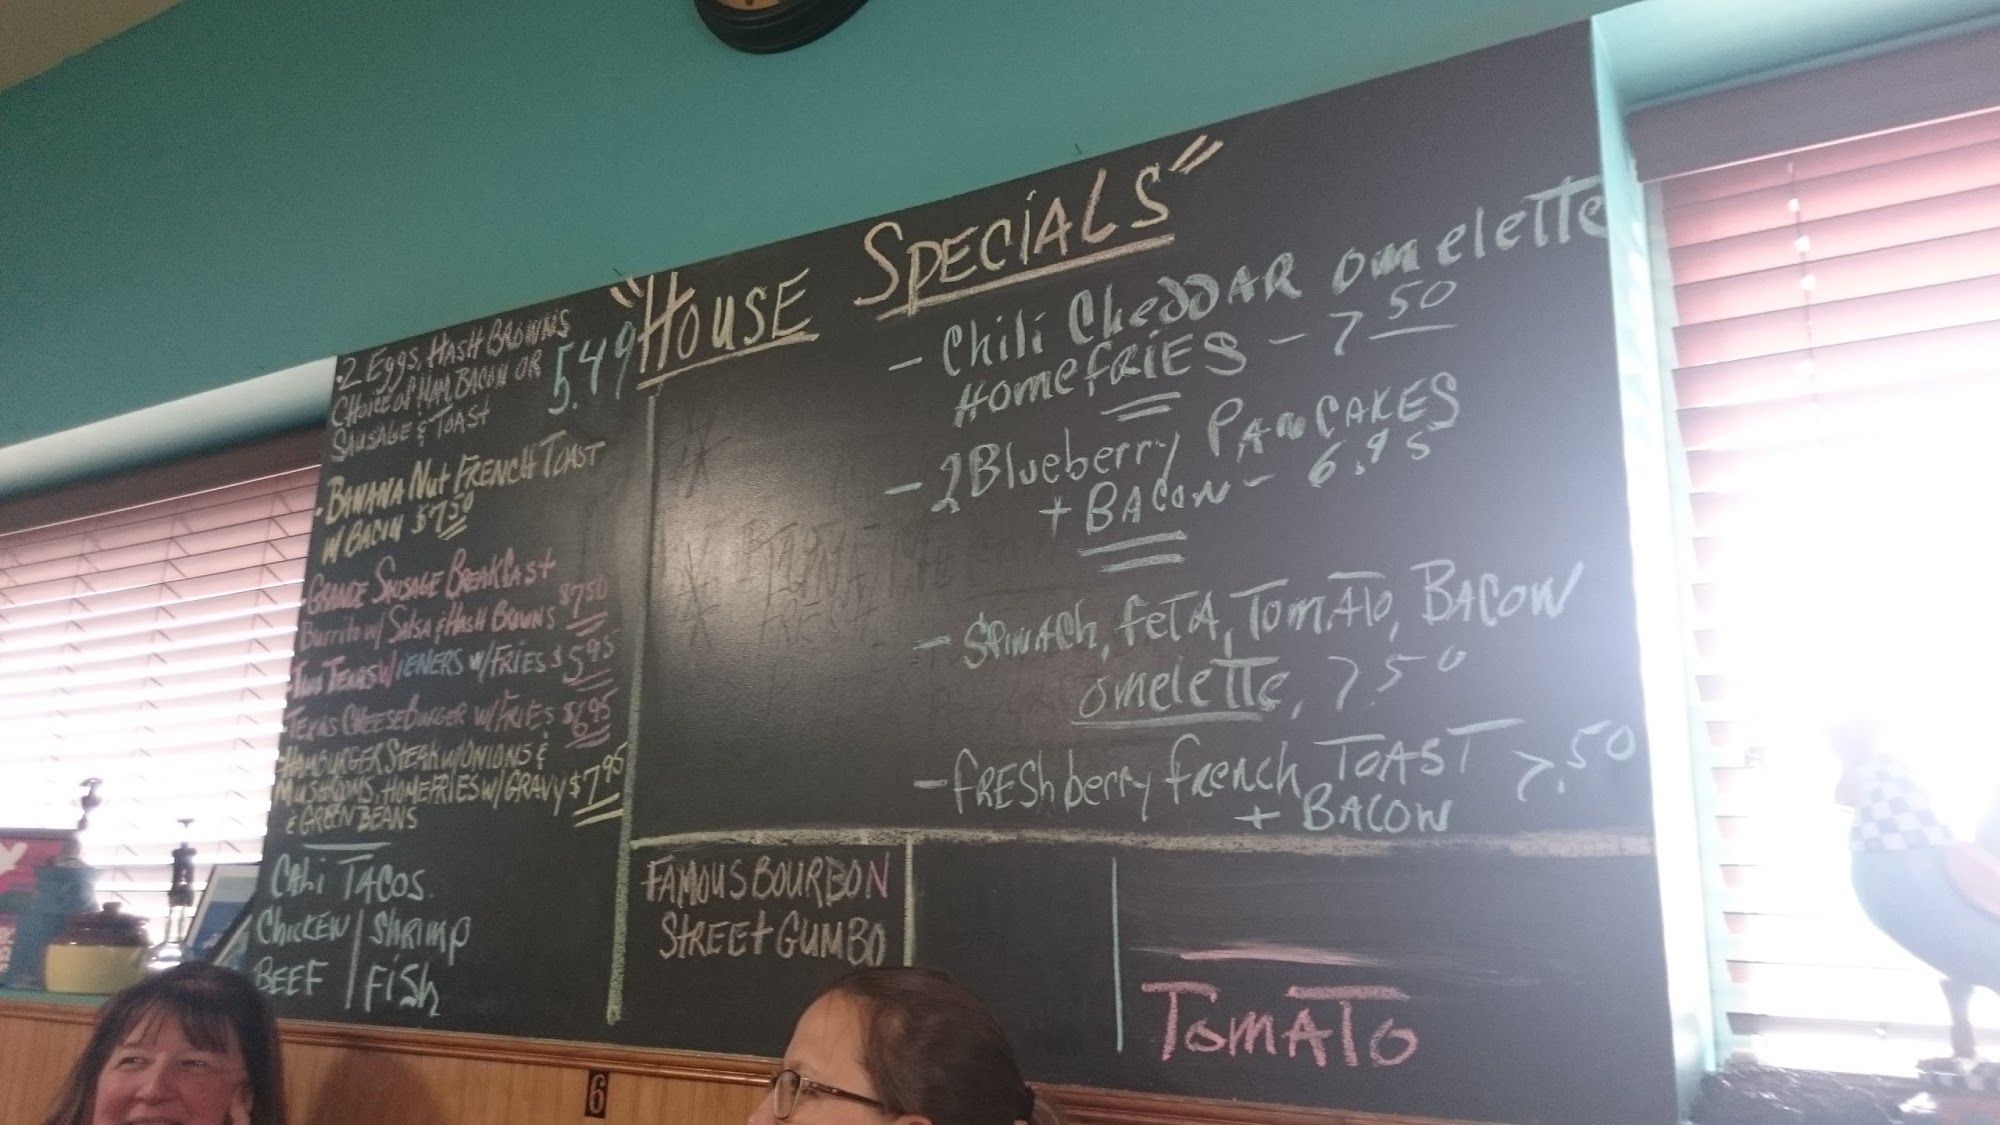 "House Specials"
• 2 Eggs, Hash Browns
Choice of Ham, Bacon or
Sausage & Toast
5.49
• Banana Nut French Toast
w/ Bacon $7.50
• Grande Sausage Breakfast
Burrito w/ Salsa & Hash Bowns $7.50
• Two Texas Wieners w/ Fries $5.95
• Texas Cheeseburger w/ Fries $6.95
• Hamburger Steak w/ Onions &
Mushrooms, Homefries w/ Gravy $7.95
& Green Beans
Cali Tacos
Chicken | Shrimp
Beef | Fish
- Chili Cheddar Omelette
Homefries - 7.50
- 2 Blueberry Pancakes
+ Bacon - 6.95
- Spinach, Feta, Tomato, Bacon
Omelette, 7.50
- Fresh berry French Toast 7.50
+ Bacon
Famous Bourbon
Street Gumbo
Tomato
6